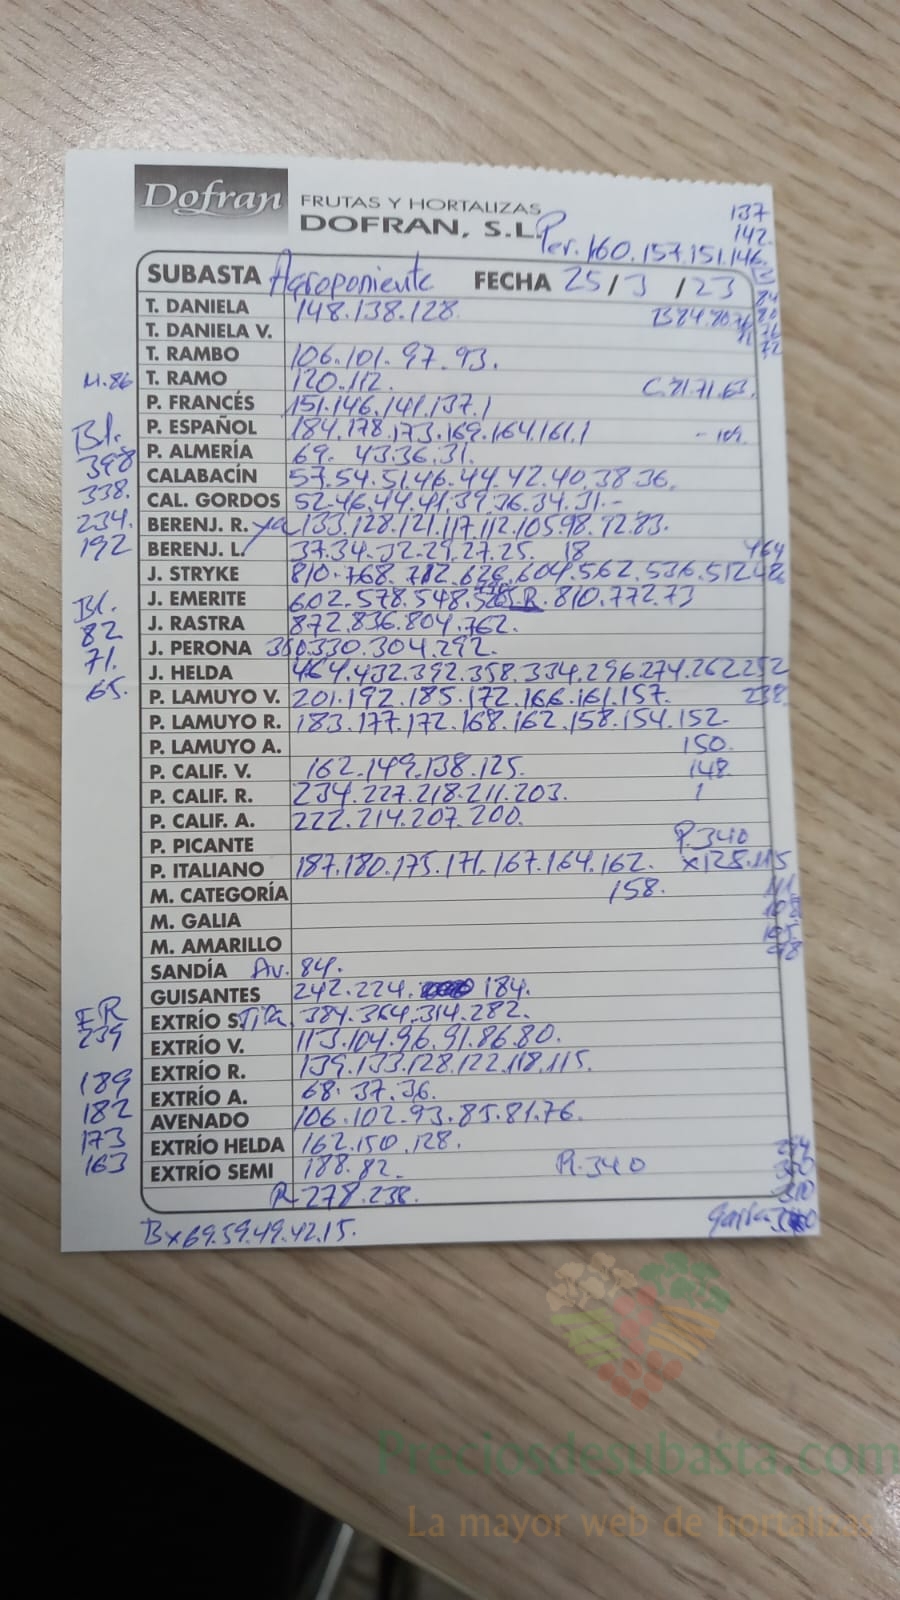 Dofran
FRUTAS Y HORTALIZAS
DOFRAN, S.L.
137
142
Per. 160.157.151.146.
SUBASTA Agroponiente FECHA 25/3/23
T. DANIELA 148.138.128.
T. DANIELA V.
T. RAMBO 106.101.97.93.
M.86 T. RAMO 120.112. C.71.63.
P. FRANCÉS 151.146.141.137.1
Bl. P. ESPAÑOL 184.178.173.169.164.161.1
398 P. ALMERÍA 69. 43.36.31.
338. CALABACÍN 57.54.51.46.44.42.40.38.36.
234. CAL. GORDOS 52.46.44.41.39.36.34.31.-
192 BERENJ. R. 133.128.121.117.112.105.98.
BERENJ. L. 37.34.32.29.27.25. 18 464
J. STRYKE 810.768. 626.604.562.536.512
Bl. J. EMERITE 602.578.548. R.810.772.73
82 J. RASTRA 872.836.804.762.
71. J. PERONA 330.304.292.
65. J. HELDA 464.432.392.358.334.296.274.262.252
P. LAMUYO V. 201.192.185.172.166.161.157. 238
P. LAMUYO R. 183.177.172.168.162.158.154.152.
P. LAMUYO A. 150.
P. CALIF. V. 162.149.138.125. 148
P. CALIF. R. 234.227.218.211.203. 1
P. CALIF. A. 222.214.207.200.
P. PICANTE P.340
P. ITALIANO 187.180.175.171.167.164.162. x128.115
M. CATEGORÍA 158.
M. GALIA
M. AMARILLO
SANDÍA Av. 84.
GUISANTES 242.224. 184.
EXTRÍO S. 384.364.314.282.
239 EXTRÍO V. 113.104.96.91.86.80.
EXTRÍO R. 139.133.128.122.118.115.
189 EXTRÍO A. 68.37.36.
182 AVENADO 106.102.93.85.81.76.
173 EXTRÍO HELDA 162.150.128.
163 EXTRÍO SEMI 188.82. R.340
R-278.238.
310
Bx69.59.49.42.15.
Preciosdesubasta.com
La mayor web de hortalizas